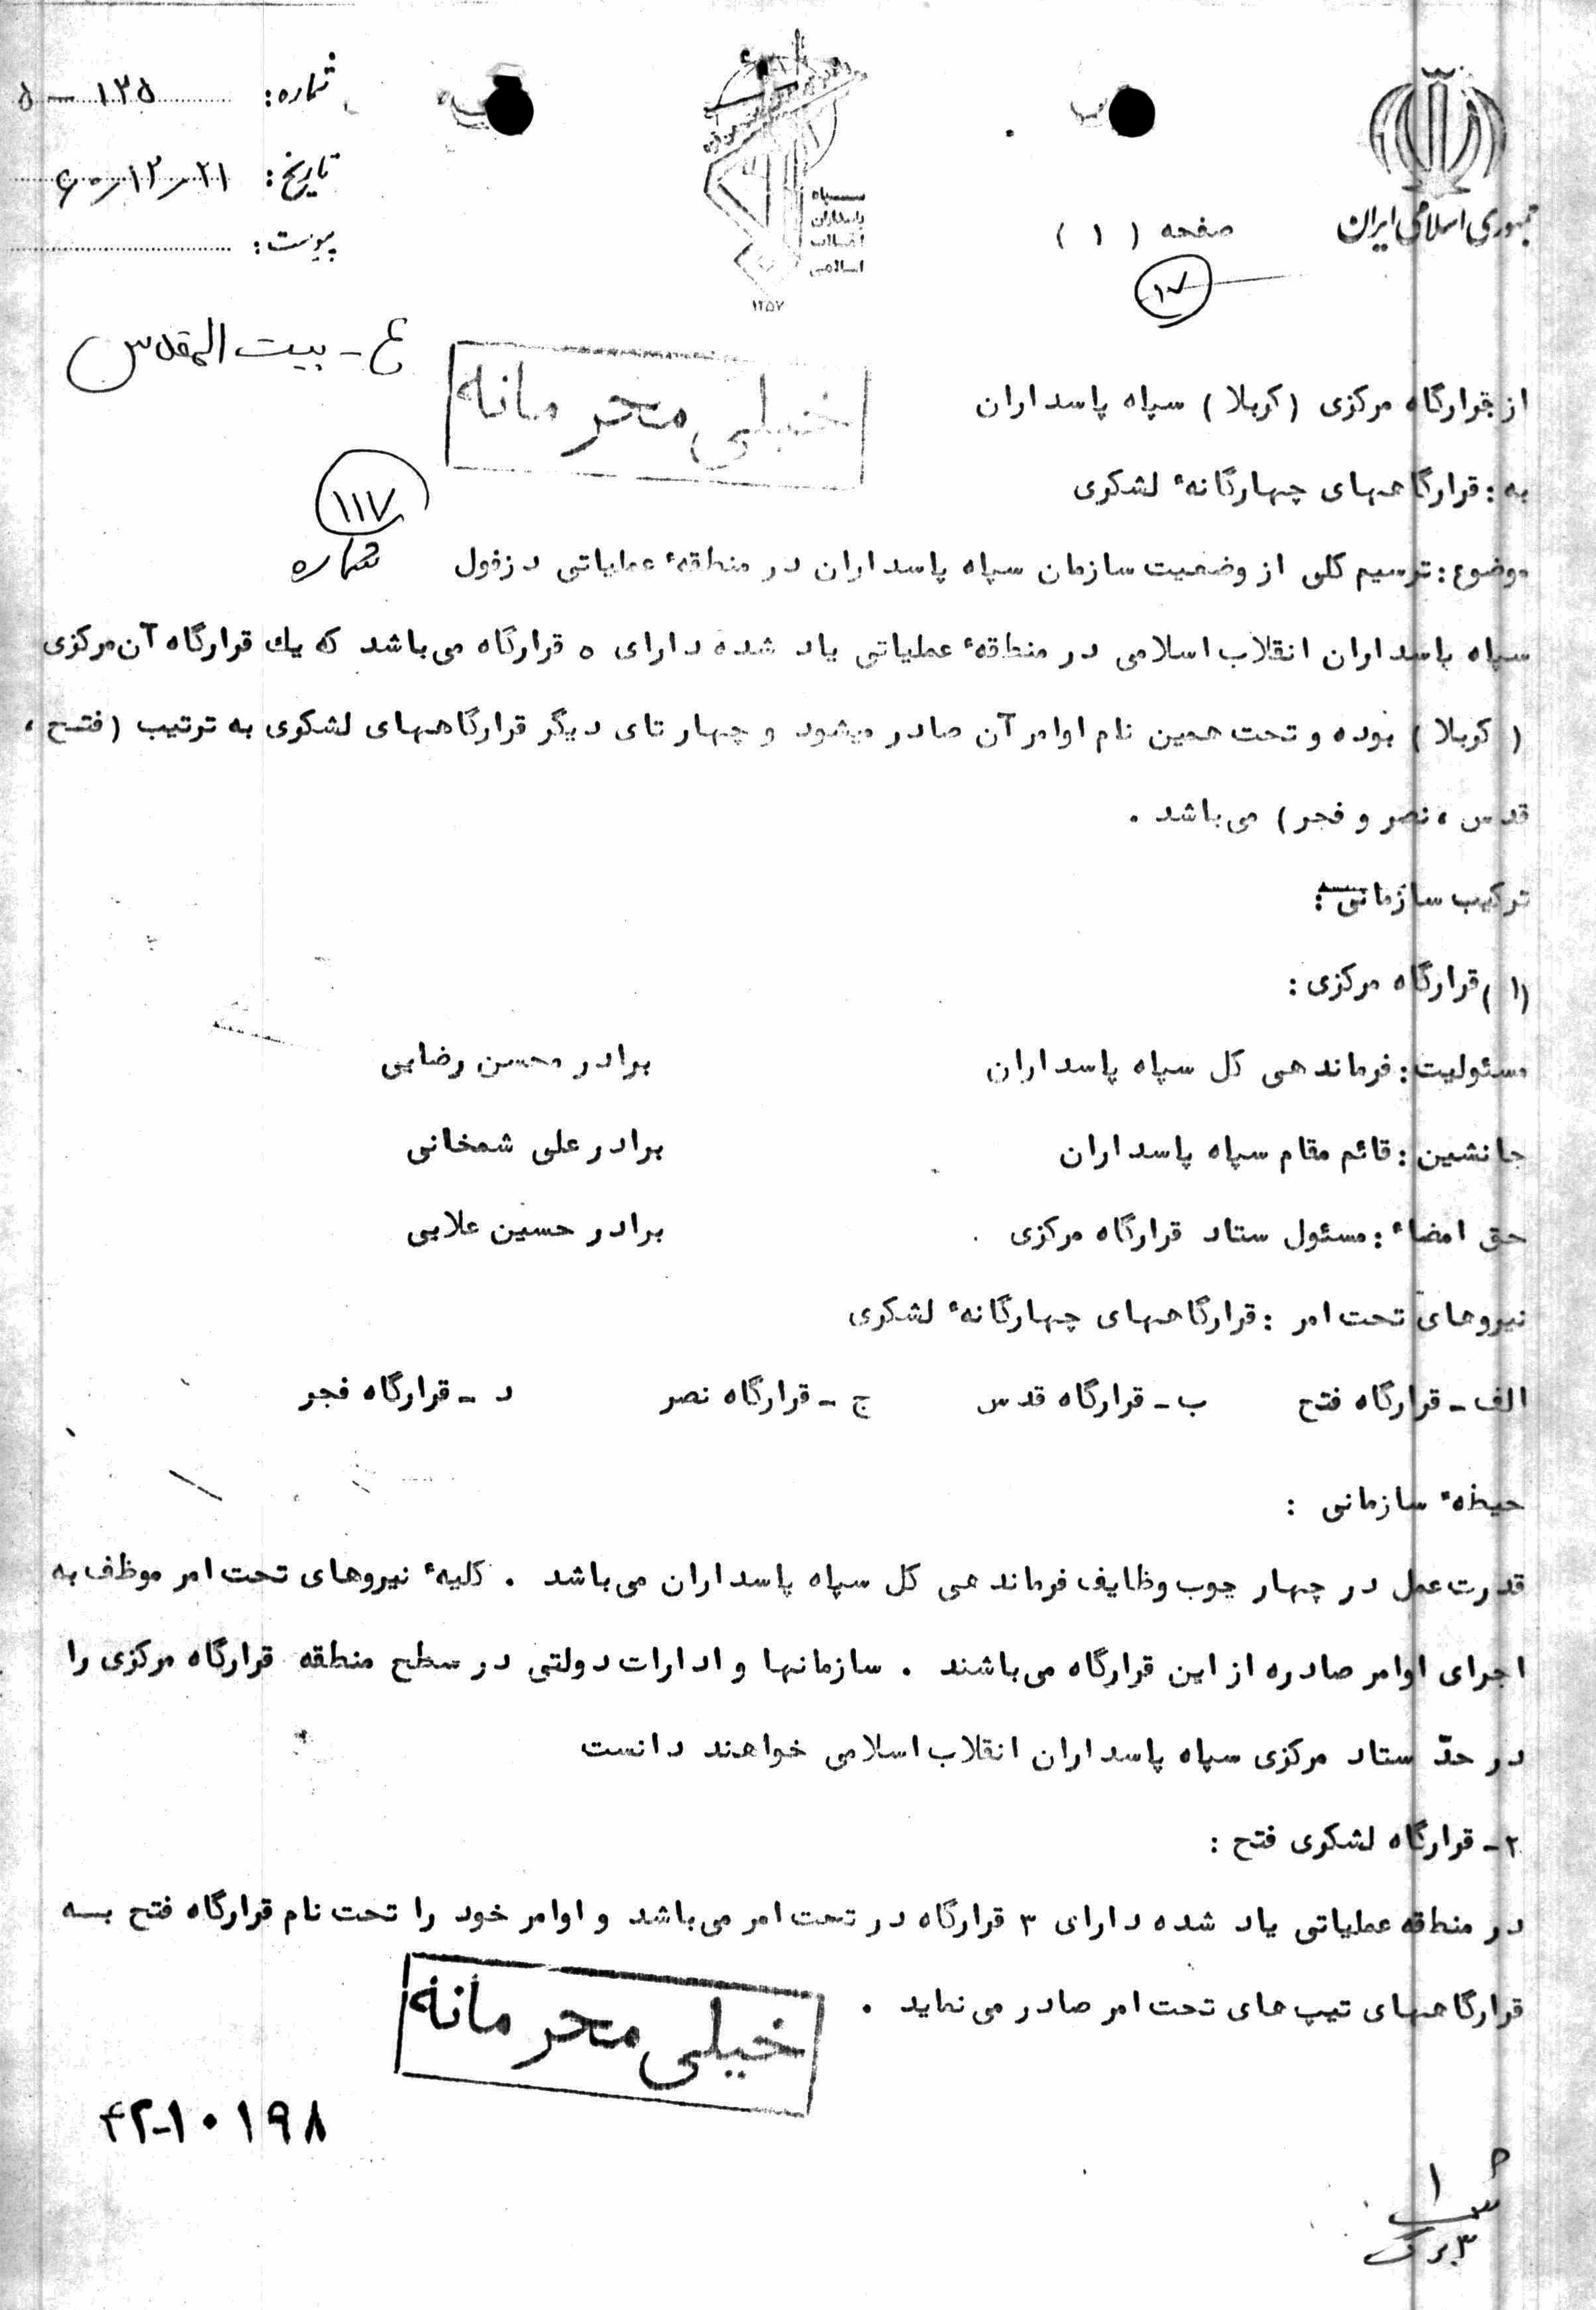 جمهوری اسلامی ایران
سپاه
پاسداران
انقلاب
اسلامی
۱۳۵۷
شماره: ۱۳۵ — ۵
تاریخ: ۲۱ر۱۲ر۶۰
پیوست:
صفحه ( ۱ )
ع - بیت المقدس
خیلی محرمانه
از قرارگاه مرکزی (کربلا) سپاه پاسداران
به: قرارگاههای چهارگانهٔ لشکری
۱۱۷
شماره
موضوع: ترسیم کلی از وضعیت سازمان سپاه پاسداران در منطقهٔ عملیاتی دزفول
سپاه پاسداران انقلاب اسلامی در منطقهٔ عملیاتی یاد شده دارای ۵ قرارگاه می‌باشد که یک قرارگاه آن مرکزی
( کربلا ) بوده و تحت همین نام اوامر آن صادر میشود و چهار تای دیگر قرارگاههای لشکری به ترتیب (فتح ،
قدس ، نصر و فجر) می‌باشد .
ترکیب سازمانی:
(۱) قرارگاه مرکزی:
مسئولیت: فرماندهی کل سپاه پاسداران برادر محسن رضایی
جانشین: قائم مقام سپاه پاسداران برادر علی شمخانی
حق امضاء: مسئول ستاد قرارگاه مرکزی برادر حسین علایی
نیروهای تحت امر : قرارگاههای چهارگانهٔ لشکری
الف - قرارگاه فتح ب - قرارگاه قدس ج - قرارگاه نصر د - قرارگاه فجر
حیطهٔ سازمانی :
قدرت عمل در چهار چوب وظایف فرماندهی کل سپاه پاسداران می‌باشد . کلیهٔ نیروهای تحت امر موظف به
اجرای اوامر صادره از این قرارگاه می‌باشند . سازمانها و ادارات دولتی در سطح منطقه قرارگاه مرکزی را
در حدّ ستاد مرکزی سپاه پاسداران انقلاب اسلامی خواهند دانست
۲- قرارگاه لشکری فتح :
در منطقه عملیاتی یاد شده دارای ۳ قرارگاه در تحت امر می‌باشد و اوامر خود را تحت نام قرارگاه فتح بسه
قرارگاههای تیپ های تحت امر صادر می نماید .
خیلی محرمانه
۴۲-۱۰۱۹۸
۱
۳ برگ